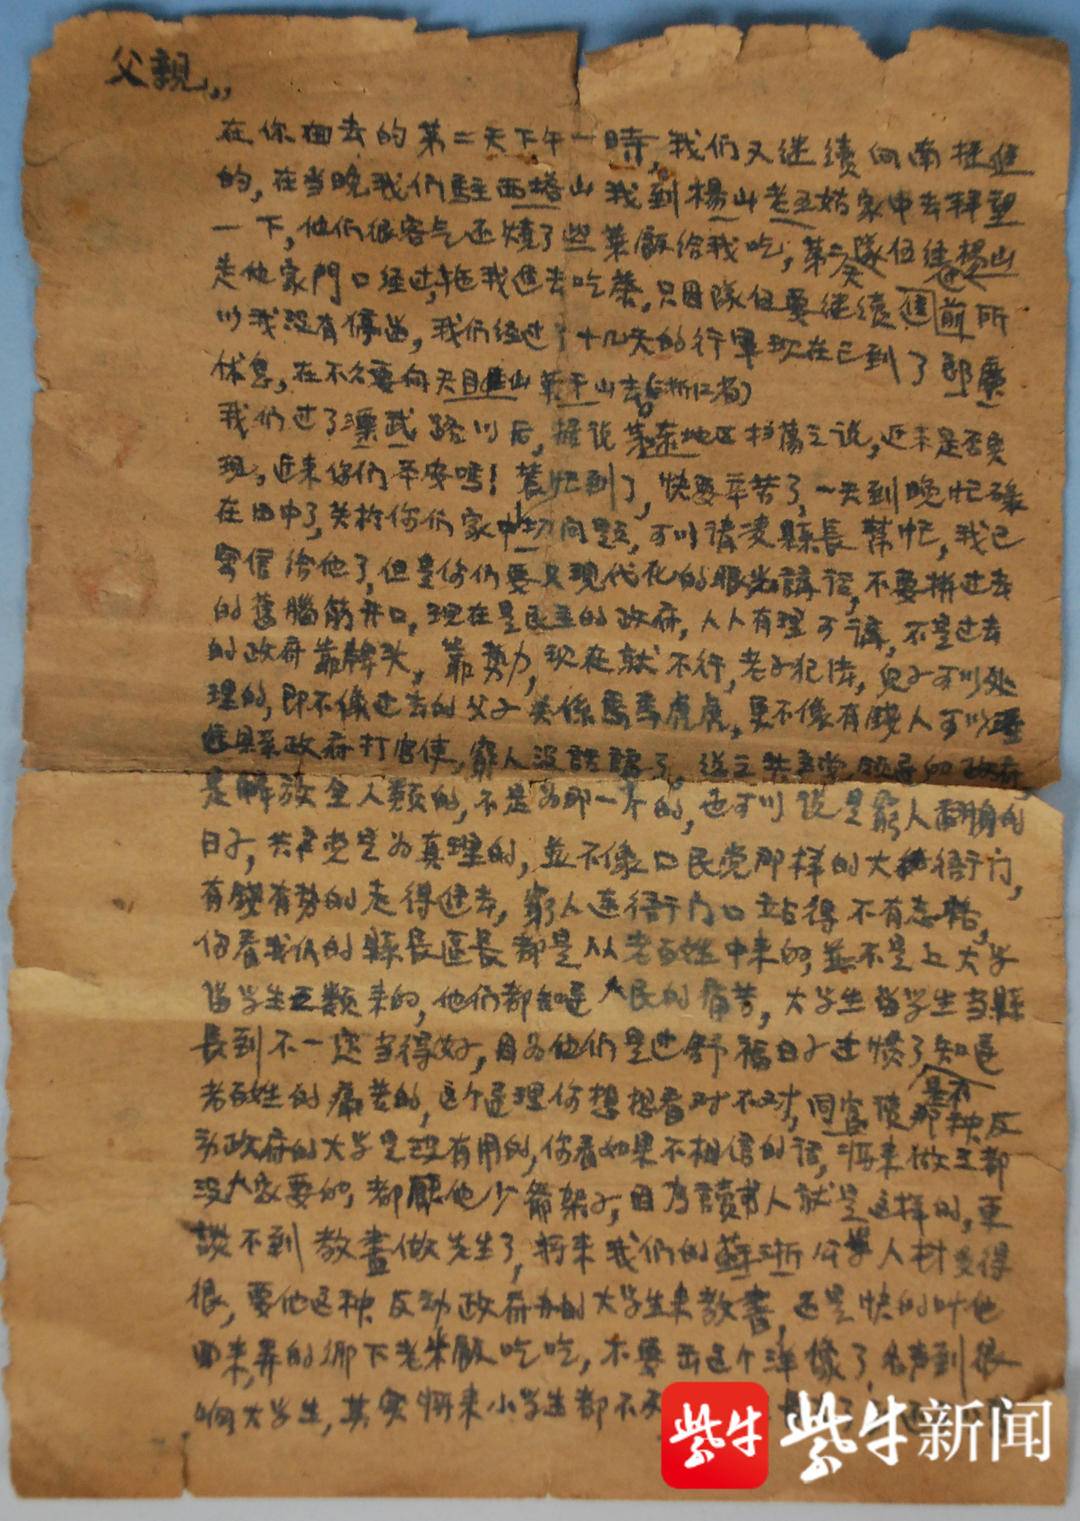 父親，，
在你回去的第二天下午一時，我们又继续向南挺進
的，在当晚我们駐西塔山我到楊山老五姑家中去拜望
一下，他们很客气还燒了些菜飯给我吃，第二天隊伍経楊山
走他家門口经过，拖我進去吃茶，只因隊伍要继续進前所
以我没有停留，我们经过了十几天的行軍现在已到了郎廣
休息，在不久要向天目山 去（浙江省）
我们过了溧武路以后，据说茅东地区扫蕩之说，近来是否实
现。近来你们平安吗！農忙到了，快要辛苦了，一天到晚忙碌
在田中了，关於你们家中一切问题，可以請凌縣長幫忙，我已
寄信给他了，但是你们要以现代化的眼光講话，不要拼过去
的舊腦筋开口，现在是民主的政府，人人有理可講，不是过去
的政府靠牌头，靠势力，现在就不行，老子犯法，兒子可以处
理的，即不像过去的父子关係馬馬虎虎，更不像有錢人可以
進县政府打官使，窮人没話講了。总之共產党领导的政府
是解放全人類的，不是为那一个的，也可以说是窮人翻身的
日子，共产党是为真理的，並不像口民党那样的大衙门，
有錢有势的走得進去，窮人连衙门口立站得不有志格，
你看我们的縣長區長都是从老百姓中来的，並不是上大学
留学生五類来的，他们都知道人民的痛苦，大学生留学生当縣
長到不一定当得好，因为他们是过舒福日子过惯了，是不知道
老百姓的痛苦的，这个道理你想想看对不对，同富读那种反
动政府的大学是没有用的，你看如果不相信的话，将来做工都
没人家要的，都 他少爺架子，因为讀书人就是这样的，更
談不到教書做先生了，将来我们的蘇浙公学人材多得
很，要他这种反动政府办的大学生来教書，还是快的叫他
回来弄的鄉下老米飯吃吃，不要出这个洋像了，名声到很
响大学生，其实将来小学生都不
紫牛 紫牛新闻